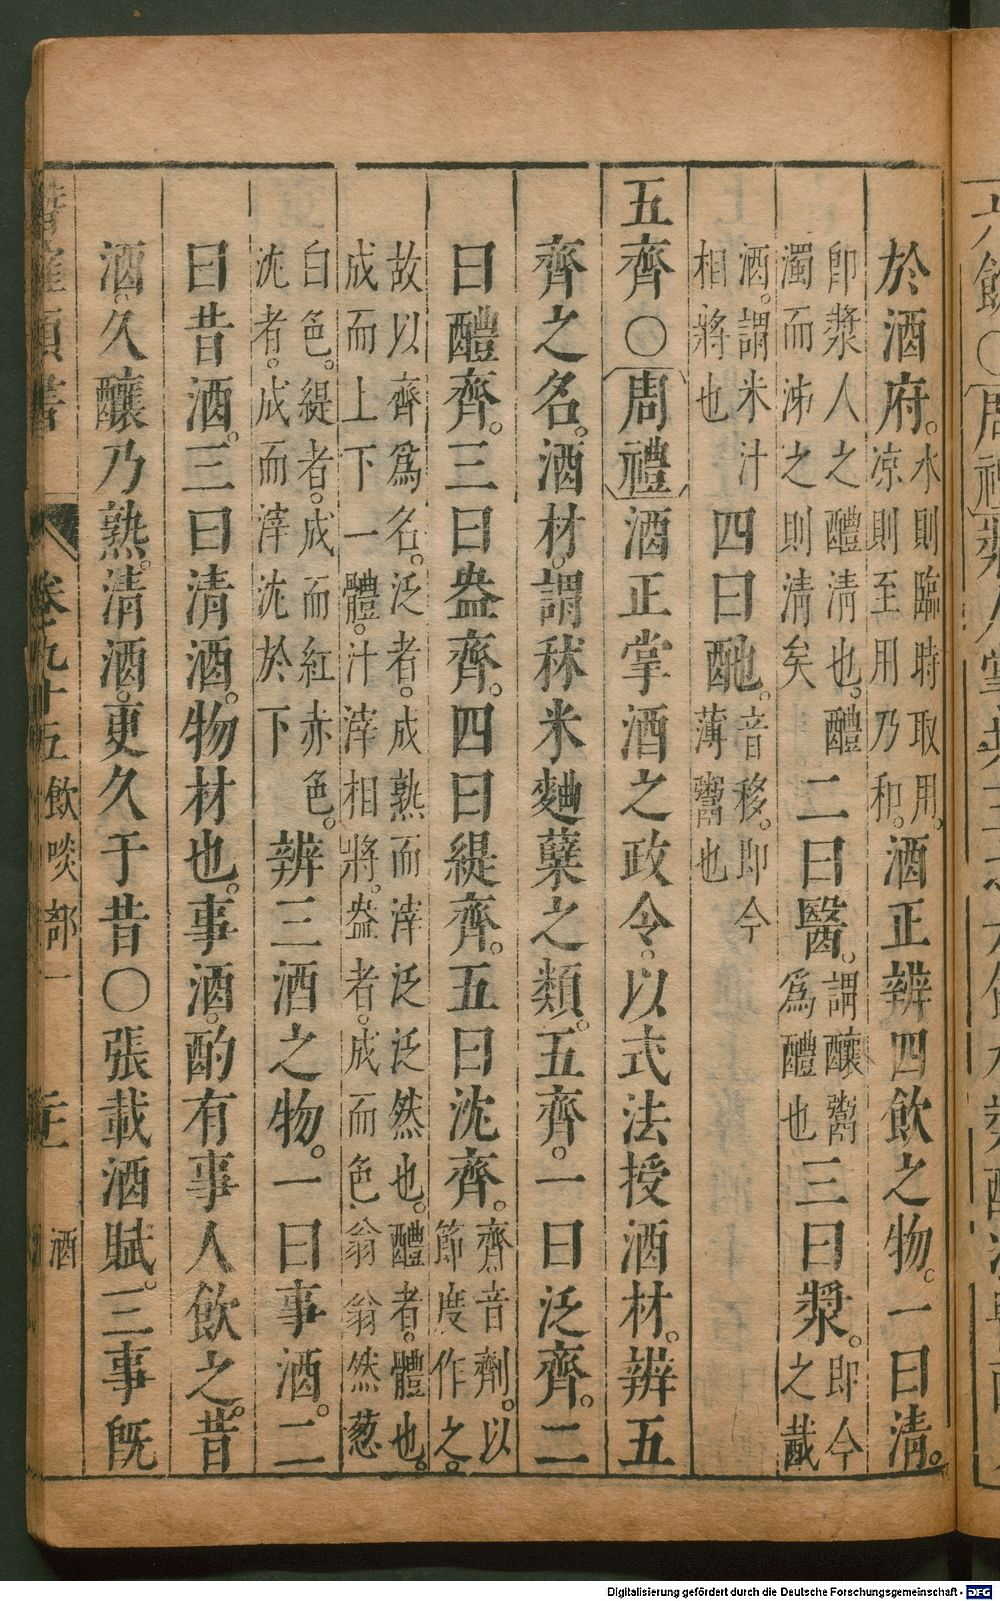 於酒府。水則臨時取用。涼則至用乃和。酒正辨四飲之物。一曰清。
卽漿人之醴清也。醴濁而泲之則清矣二曰醫。謂釀鬻爲醴也三曰漿。即今之酨
酒。謂米汁相將也四曰酏。音移。即今薄鬻也
五齊〇周禮酒正掌酒之政令。以式法授酒材。辨五
齊之名。酒材。謂秫米麯糵之類。五齊。一曰泛齊。二
曰醴齊。三曰盎齊。四曰緹齊。五曰沈齊。齊音劑。以節度作之。
故以齊爲名。泛者。成熟而滓泛泛然也。醴者。體也。成而上下一體。汁滓相將。盎者。成而色翁翁然葱
白色。緹者。成而紅赤色。沈者。成而滓沈於下辨三酒之物。一曰事酒。二
曰昔酒。三曰清酒。物材也。事酒。酌有事人飲之。昔
酒。久釀乃熟。清酒。更久于昔〇張載酒賦。三事旣
卷九十五 飲啖部一 酒
Digitalisierung gefördert durch die Deutsche Forschungsgemeinschaft - DFG